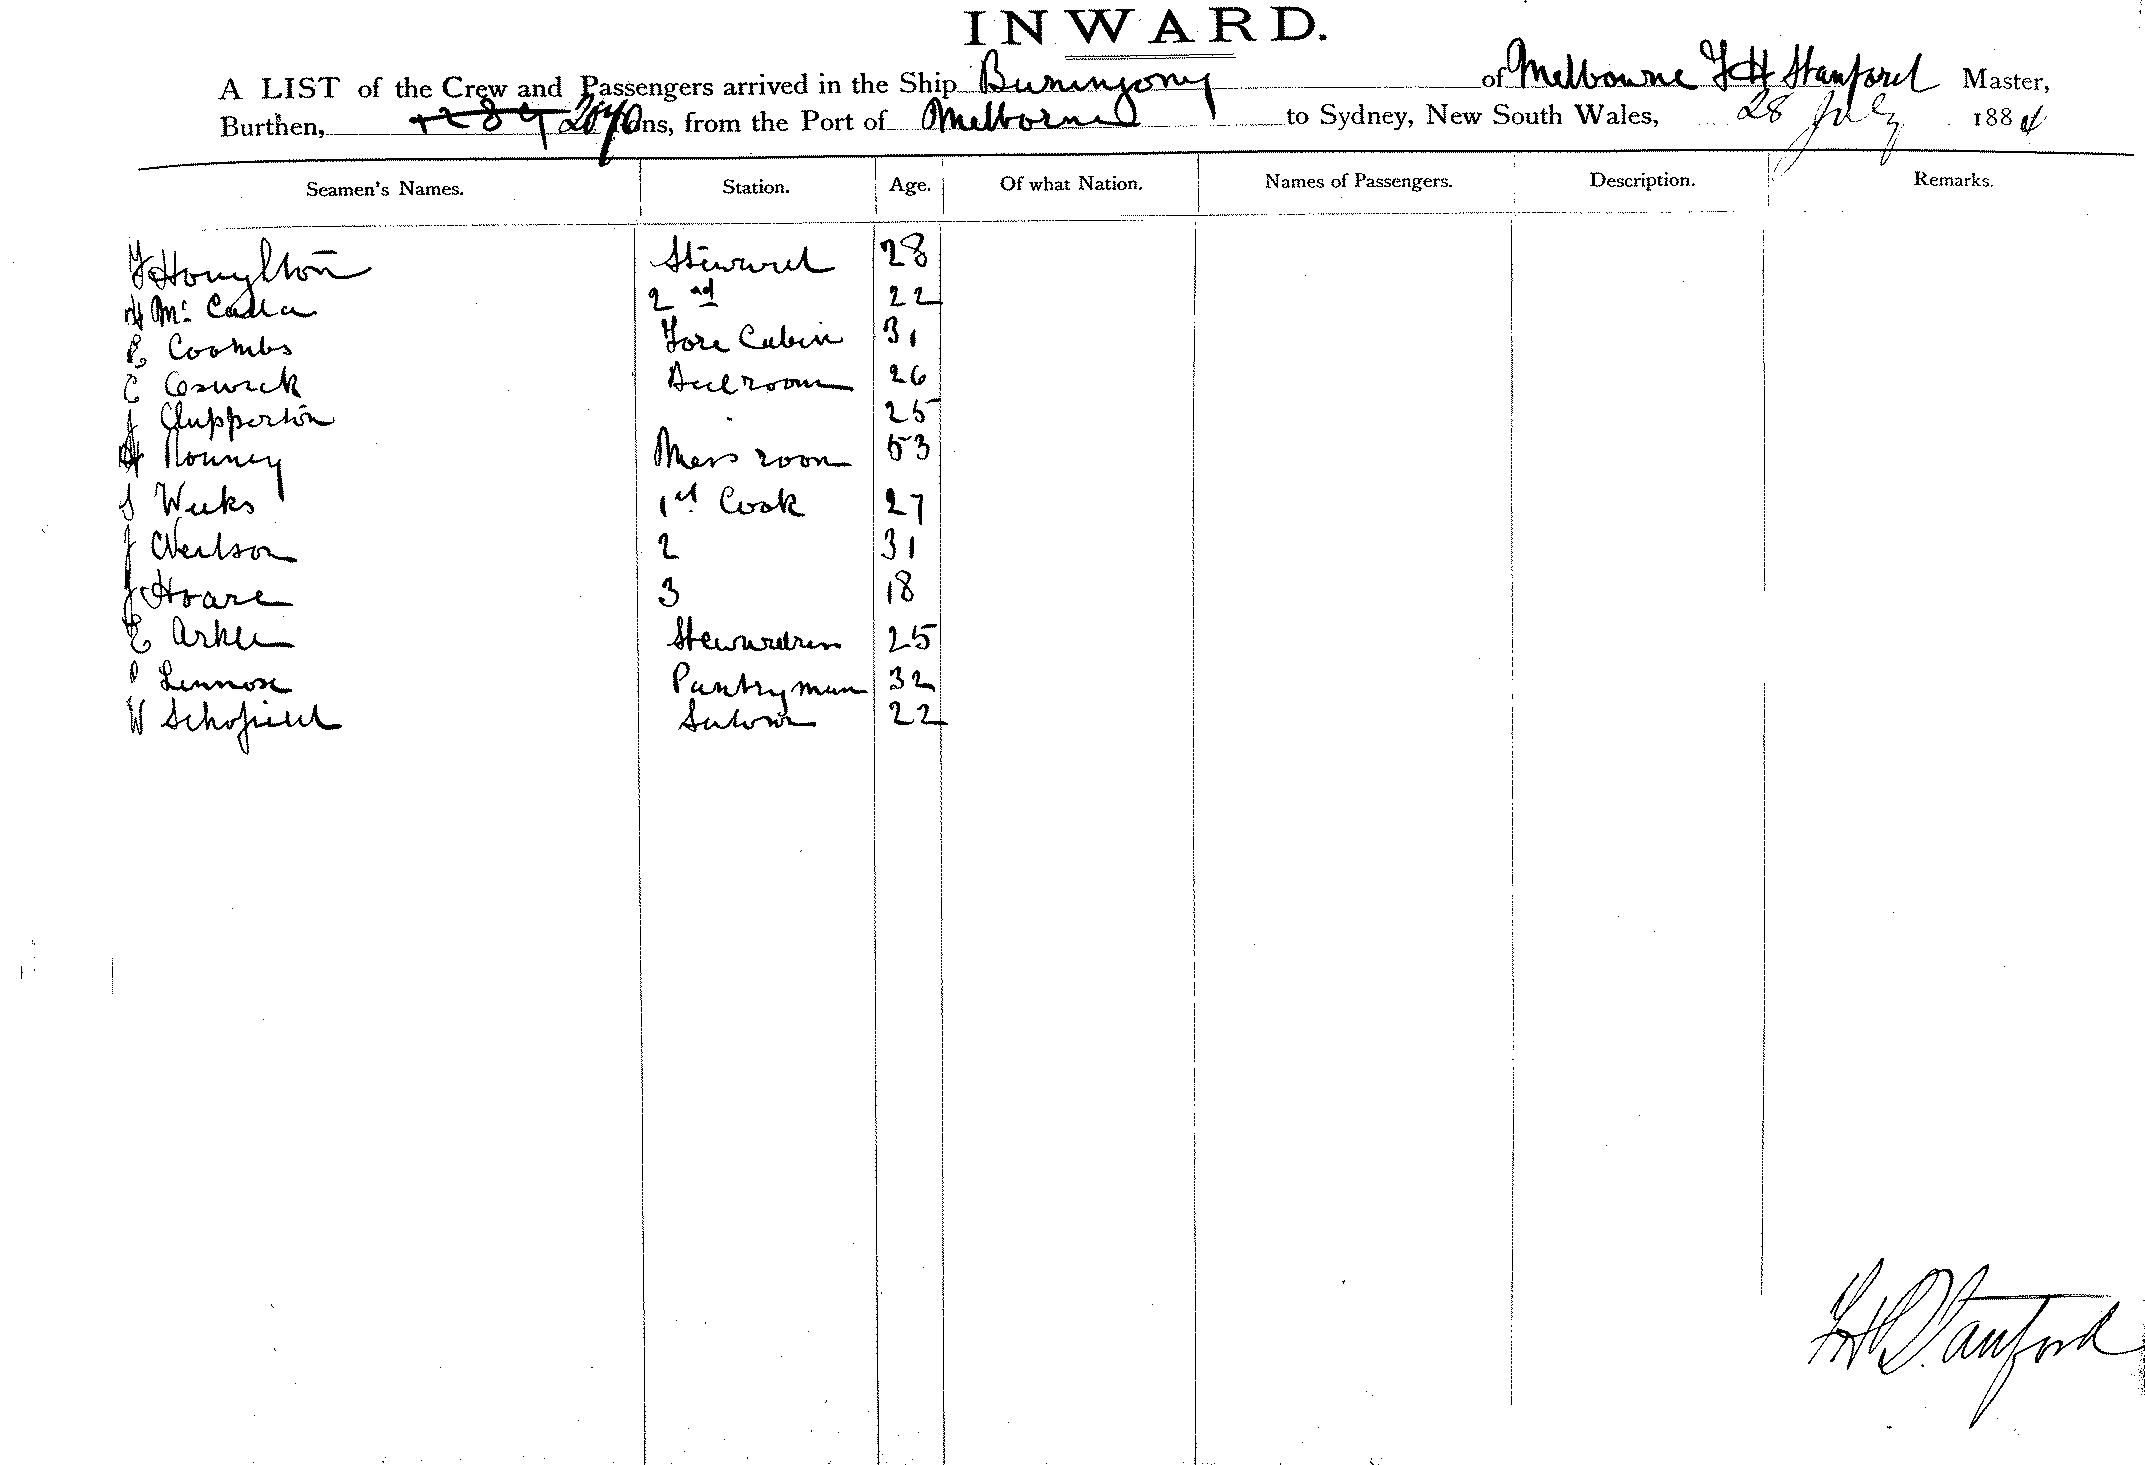 INWARD.
A LIST of the Crew and Passengers arrived in the Ship Buninyong of Melbourne F H Stanford Master,
Burthen, 1289 2070 ons, from the Port of Melborne to Sydney, New South Wales, 28 July 1884
Seamen's Names. Station. Age. Of what Nation. Names of Passengers. Description. Remarks.
F Houghton Steward 28
H Mc Calla 2nd 22
R Coombs Fore Cabin 31
C Bedroom 26
J Clapperton 25
H Mess room 53
S Weeks 1st Cook 27
J Neilson 2 31
J Hoare 3 18
E Stewardess 25
P Lennox Pantryman 32
W Schofield Saloon 22
F H Stanford